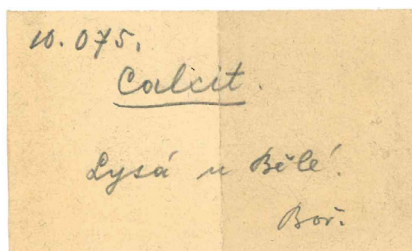 10.075.
Calcit.
Lysá u Bělé.
Boř.